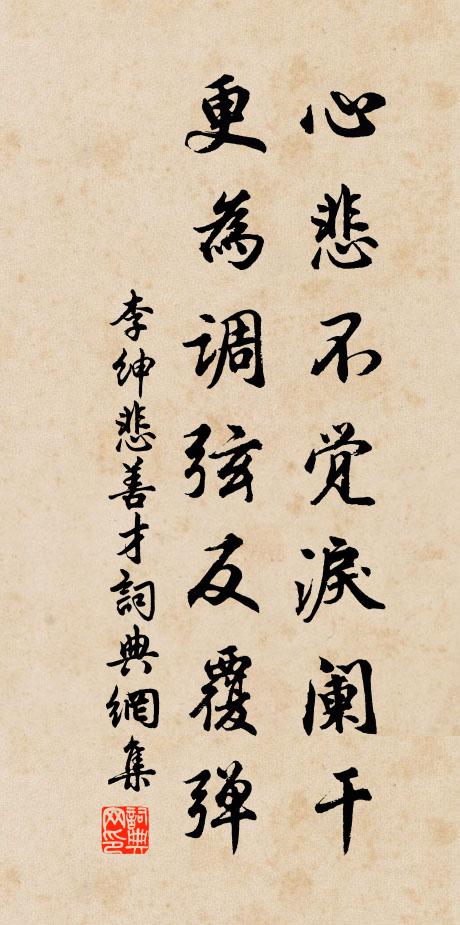 心悲不觉淚阑干
更為调弦反覆弹
李绅悲善才詞典網集
詞典网印